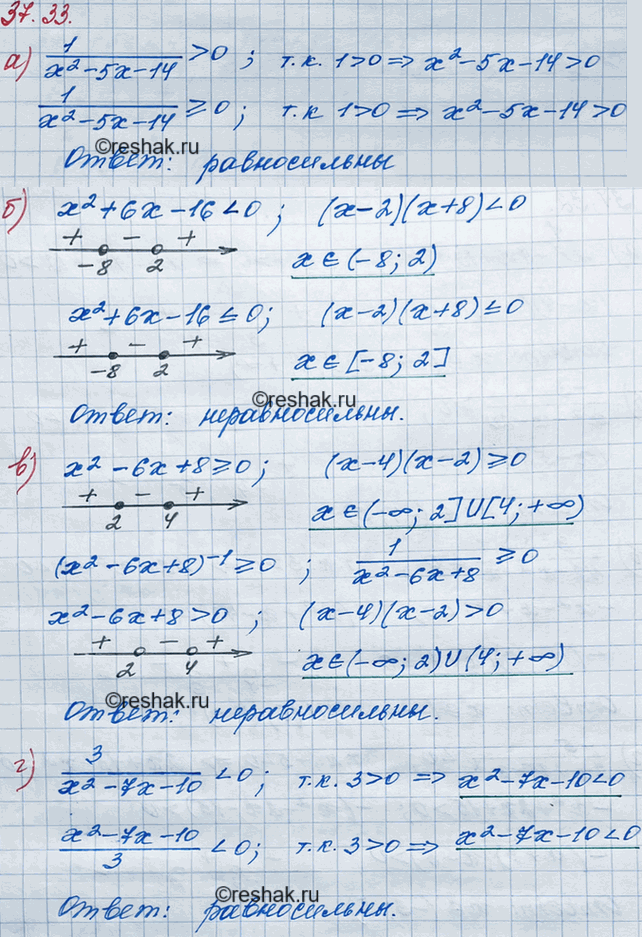 37.33.
а) 1/(x²-5x-14) >0 ; т.к. 1>0 => x²-5x-14>0
1/(x²-5x-14) ≥0; т.к 1>0 => x²-5x-14>0
©reshak.ru
Ответ: равносильны
б) x²+6x-16<0 ; (x-2)(x+8)<0
+ - +
-8 2 x∈(-8; 2)
x²+6x-16≤0; (x-2)(x+8)≤0
+ - +
-8 2 x∈[-8; 2]
©reshak.ru
Ответ: неравносильны.
в) x²-6x+8≥0; (x-4)(x-2)≥0
+ - +
2 4 x∈(-∞; 2]U[4; +∞)
(x²-6x+8)⁻¹≥0 ; 1/(x²-6x+8) ≥0
x²-6x+8>0 ; (x-4)(x-2)>0
+ - +
2 4 x∈(-∞; 2)U(4; +∞)
©reshak.ru
Ответ: неравносильны.
г) 3/(x²-7x-10) <0; т.к. 3>0 => x²-7x-10<0
(x²-7x-10)/3 <0; т.к. 3>0 => x²-7x-10<0
©reshak.ru
Ответ: равносильны.